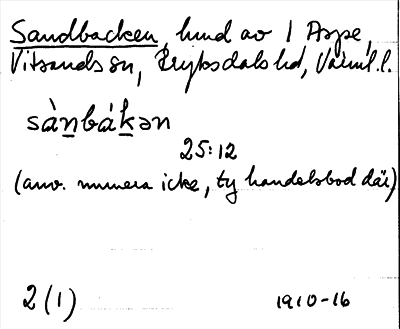 Sandbacken, hmd av 1 Aspe,
Vitsands sn, Fryksdals hd, Värml. l.
sànbákən
25:12
(anv. numera icke, ty handelsbod där)
2 (1) 1910-16